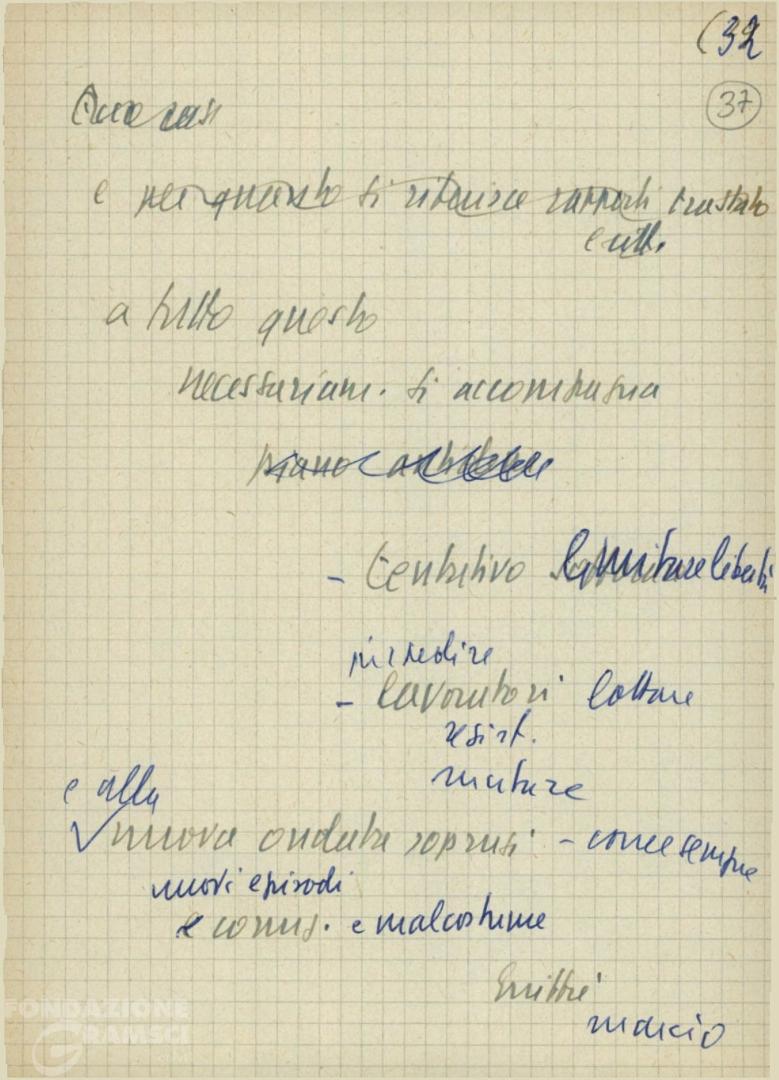 (32
37
e per questo si riduce rapporti
e utili
a tutto questo
necessariam. si accompagna
- tentativo limitare libertà
impedire
- lavoratori lottare
resist.
mutare
e alla
nuova ondata soprusi - come sempre
nuovi episodi
e corruz. e malcostume
marcio
FONDAZIONE
GRAMSCI